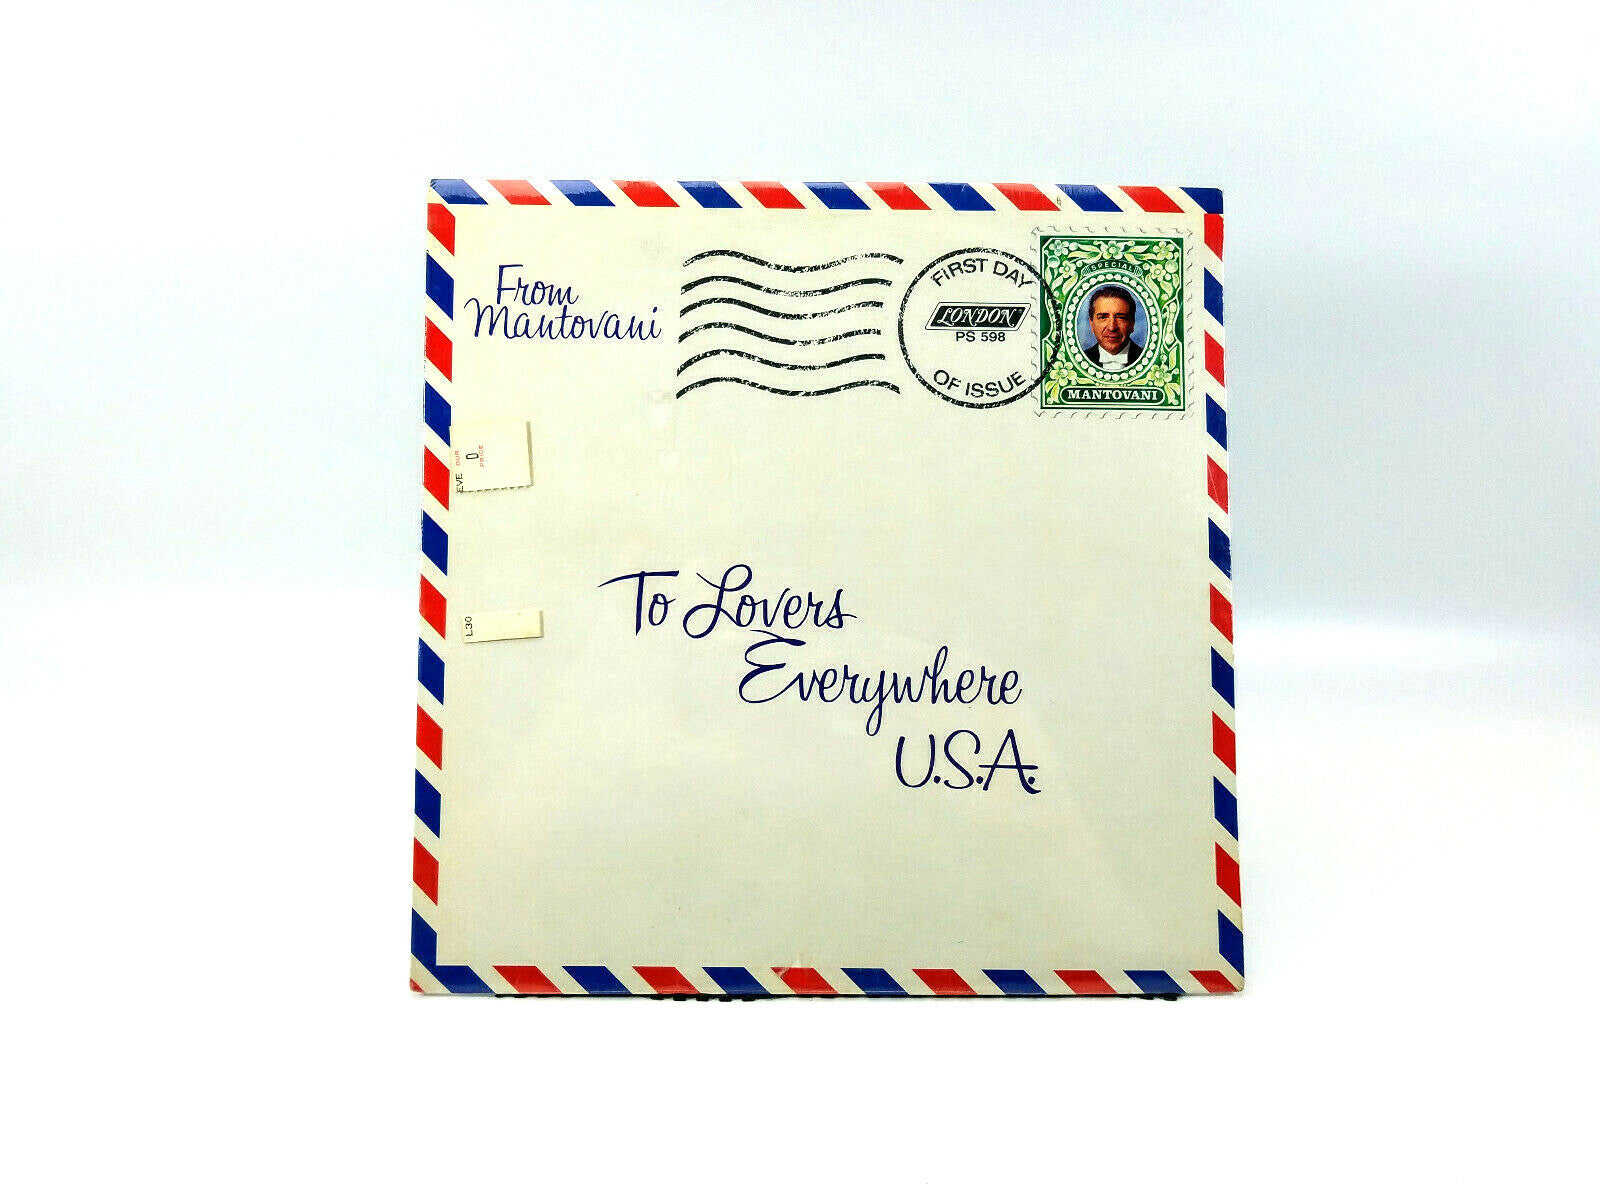 From
Mantovani
FIRST DAY
LONDON
PS 598
OF ISSUE
SPECIAL
MANTOVANI
EVE
OUR
PRICE
L30
To Lovers
Everywhere
U.S.A.